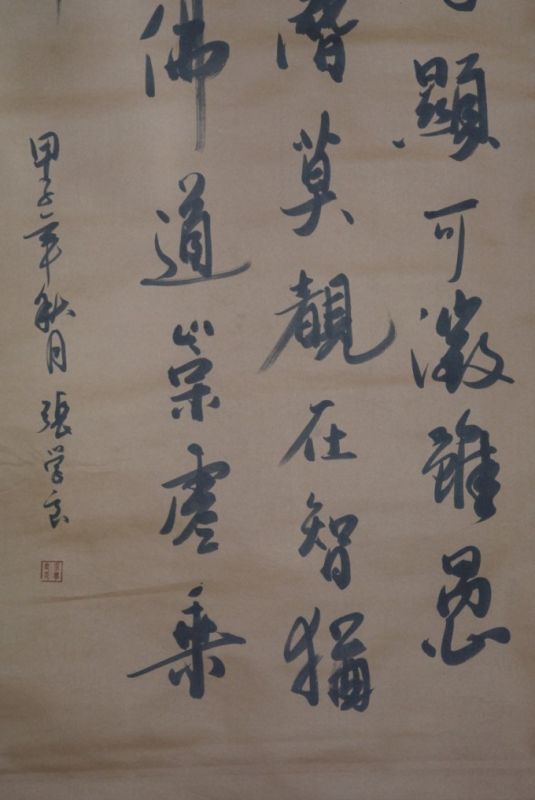 顯可徵雖愚
潛莫覩在智猶
佛道崇虛乘
甲子年秋月 張学良